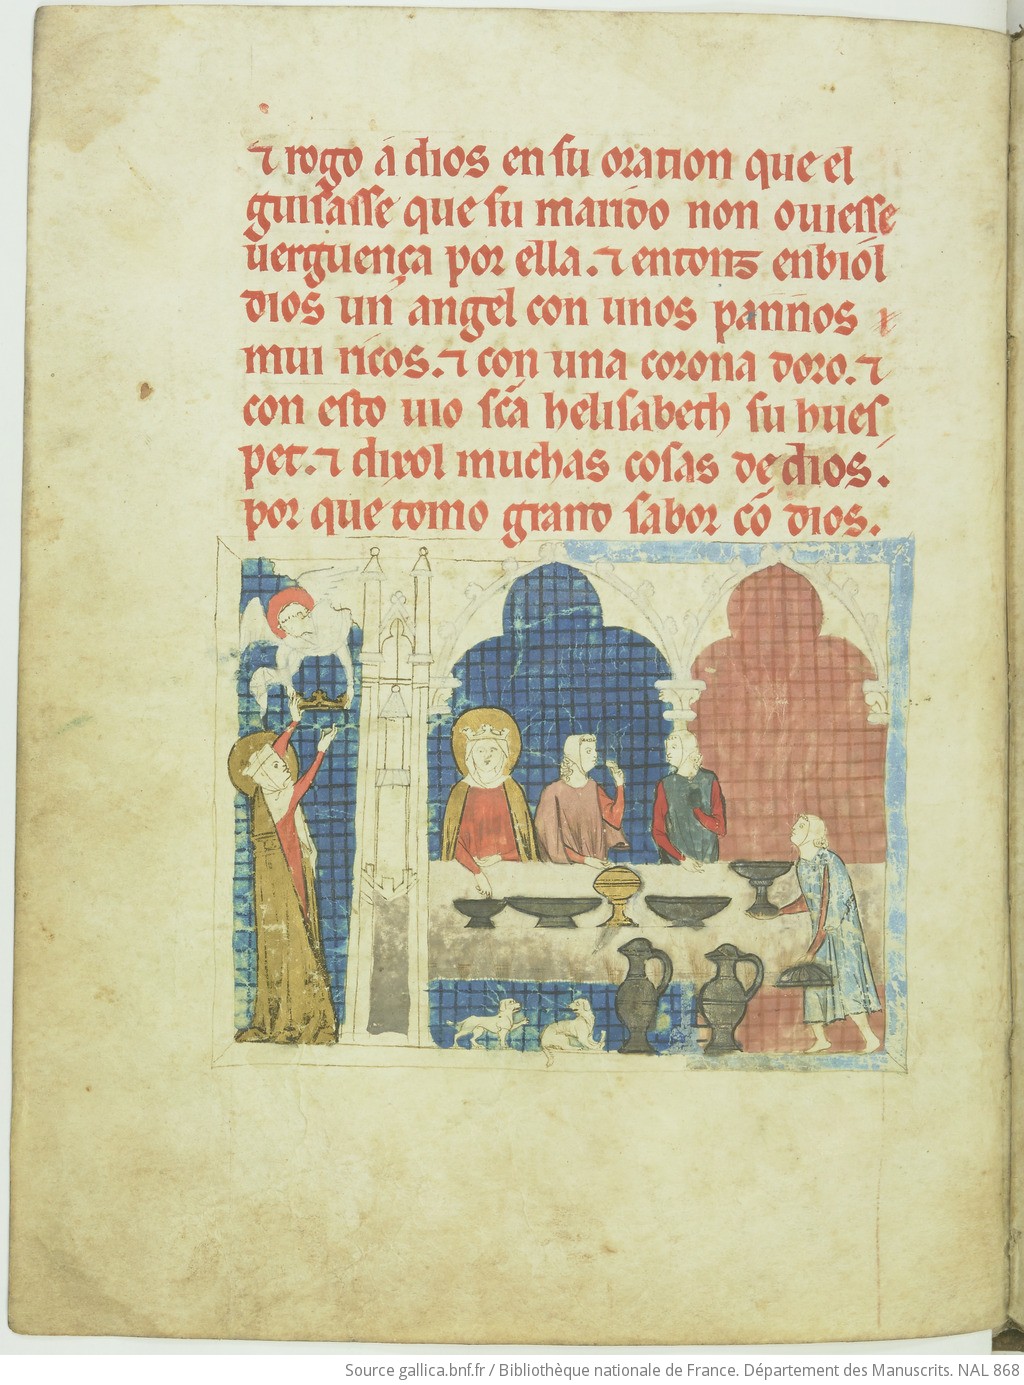 ⁊ rogo á dios en su oration que el
guisasse que su marido non ouiesse
uerguença por ella. ⁊ entonz enbiól
dios un angel con unos pannos
mui ricos. ⁊ con una corona doro. ⁊
con esto uio sc̃a helisabeth su hues
pet. ⁊ dixol muchas cosas de dios.
por que tomo grand sabor cõ dios.
Source gallica.bnf.fr / Bibliothèque nationale de France. Département des Manuscrits. NAL 868